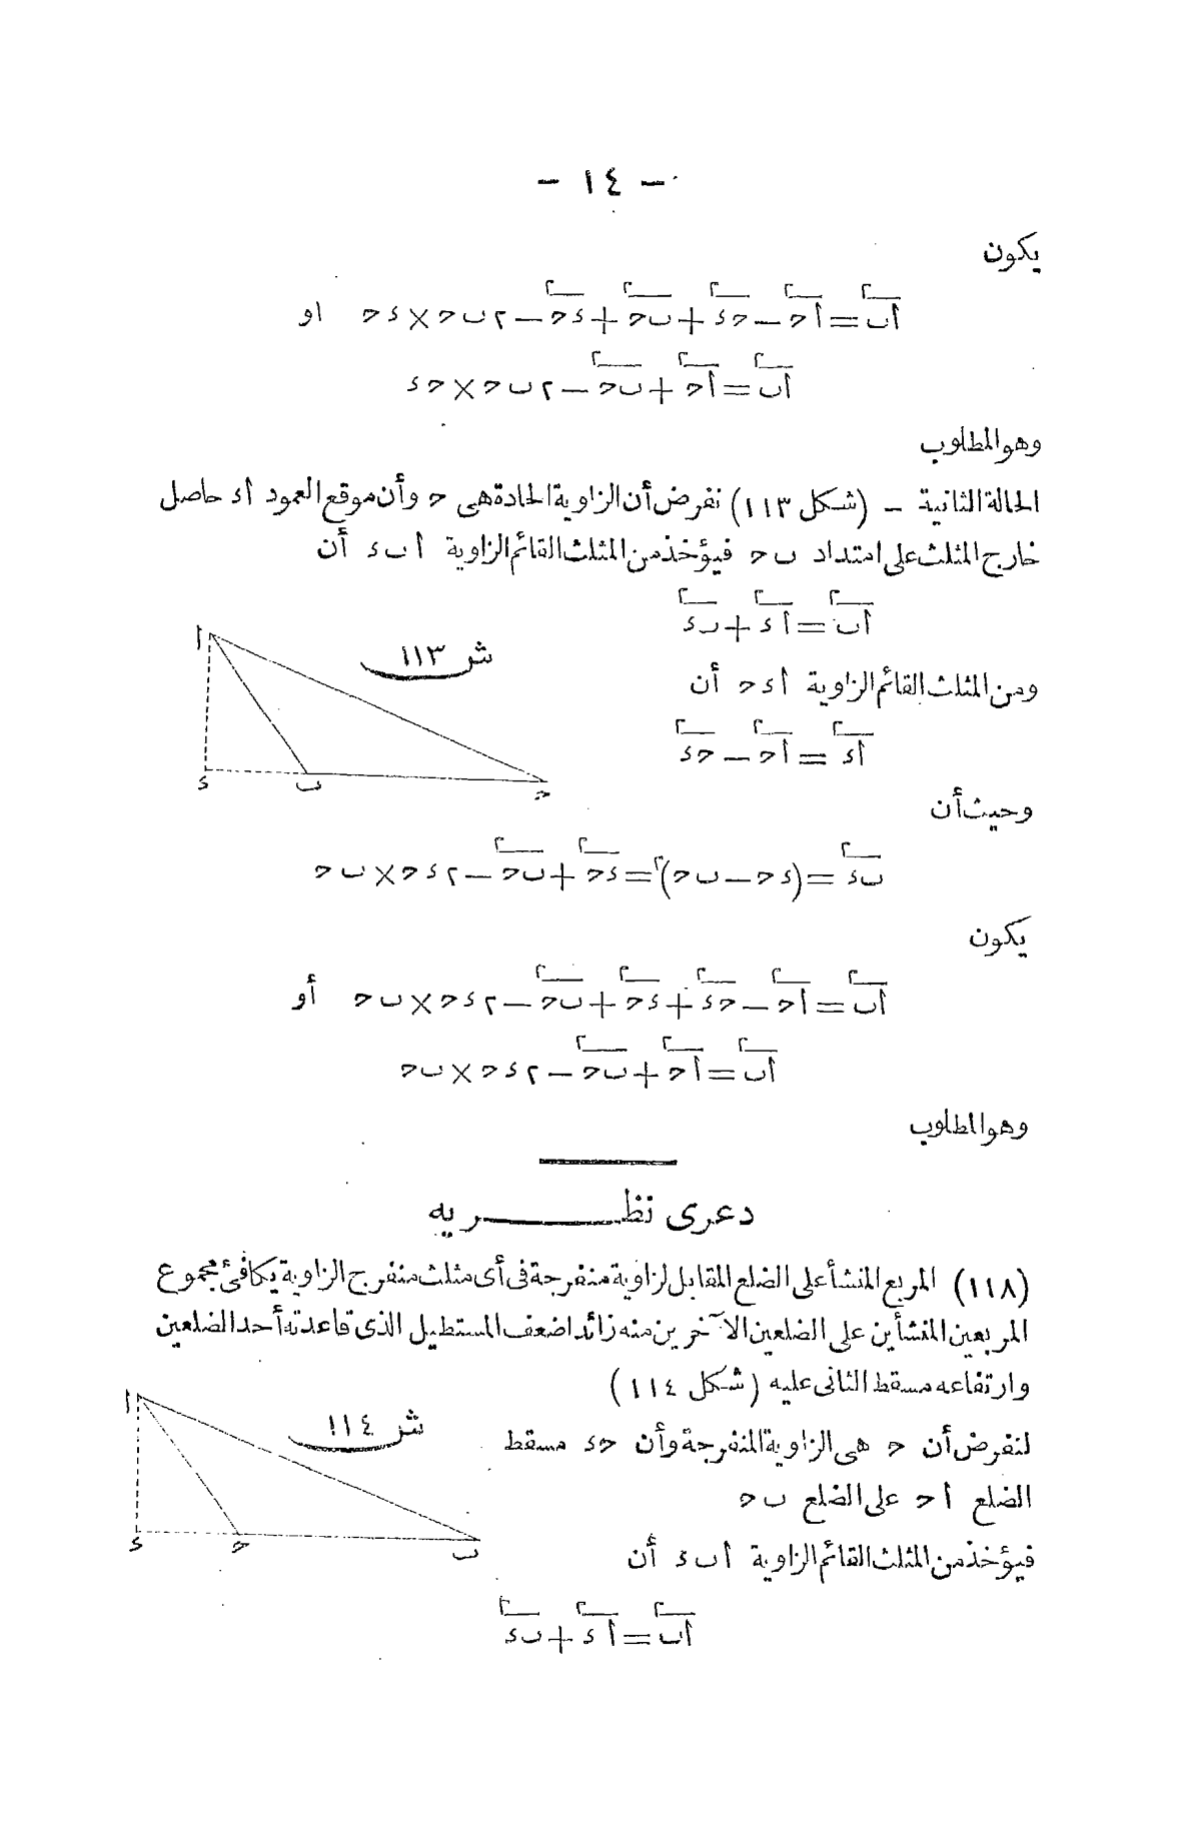 - ١٤ -
يكون
أب٢ = أح٢ - حء٢ + بح٢ + ءح٢ - ٢ بح × ءح او
أب٢ = أح٢ + بح٢ - ٢ بح × حء
وهو المطلوب
الحالة الثانية - (شكل ١١٣) نفرض أن الزاوية الحادة هى ح وأن موقع العمود أء حاصل
خارج المثلث على امتداد ب ح فيؤخذ من المثلث القائم الزاوية أ ب ء أن
أب٢ = أء٢ + بء٢
ش ١١٣
ومن المثلث القائم الزاوية أ ء ح أن
أء٢ = أح٢ - حء٢
أ
ء ب ح
وحيث أن
بء٢ = (ءح - بح)٢ = ءح٢ + بح٢ - ٢ ءح × بح
يكون
أب٢ = أح٢ - حء٢ + ءح٢ + بح٢ - ٢ ءح × بح أو
أب٢ = أح٢ + بح٢ - ٢ ءح × بح
وهو المطلوب
دعرى نظريه
(١١٨) المربع المنشأ على الضلع المقابل لزاوية منفرجة فى أى مثلث منفرج الزاوية يكافئ مجموع
المربعين المنشأين على الضلعين الآخرين منه زائدا ضعف المستطيل الذى قاعدته أحد الضلعين
وارتفاعه مسقط الثانى عليه (شكل ١١٤)
ش ١١٤
لنفرض أن ح هى الزاوية المنفرجة وأن حء مسقط
الضلع أ ح على الضلع ب ح
فيؤخذ من المثلث القائم الزاوية أ ب ء أن
أ
ء ح ب
أب٢ = أء٢ + بء٢